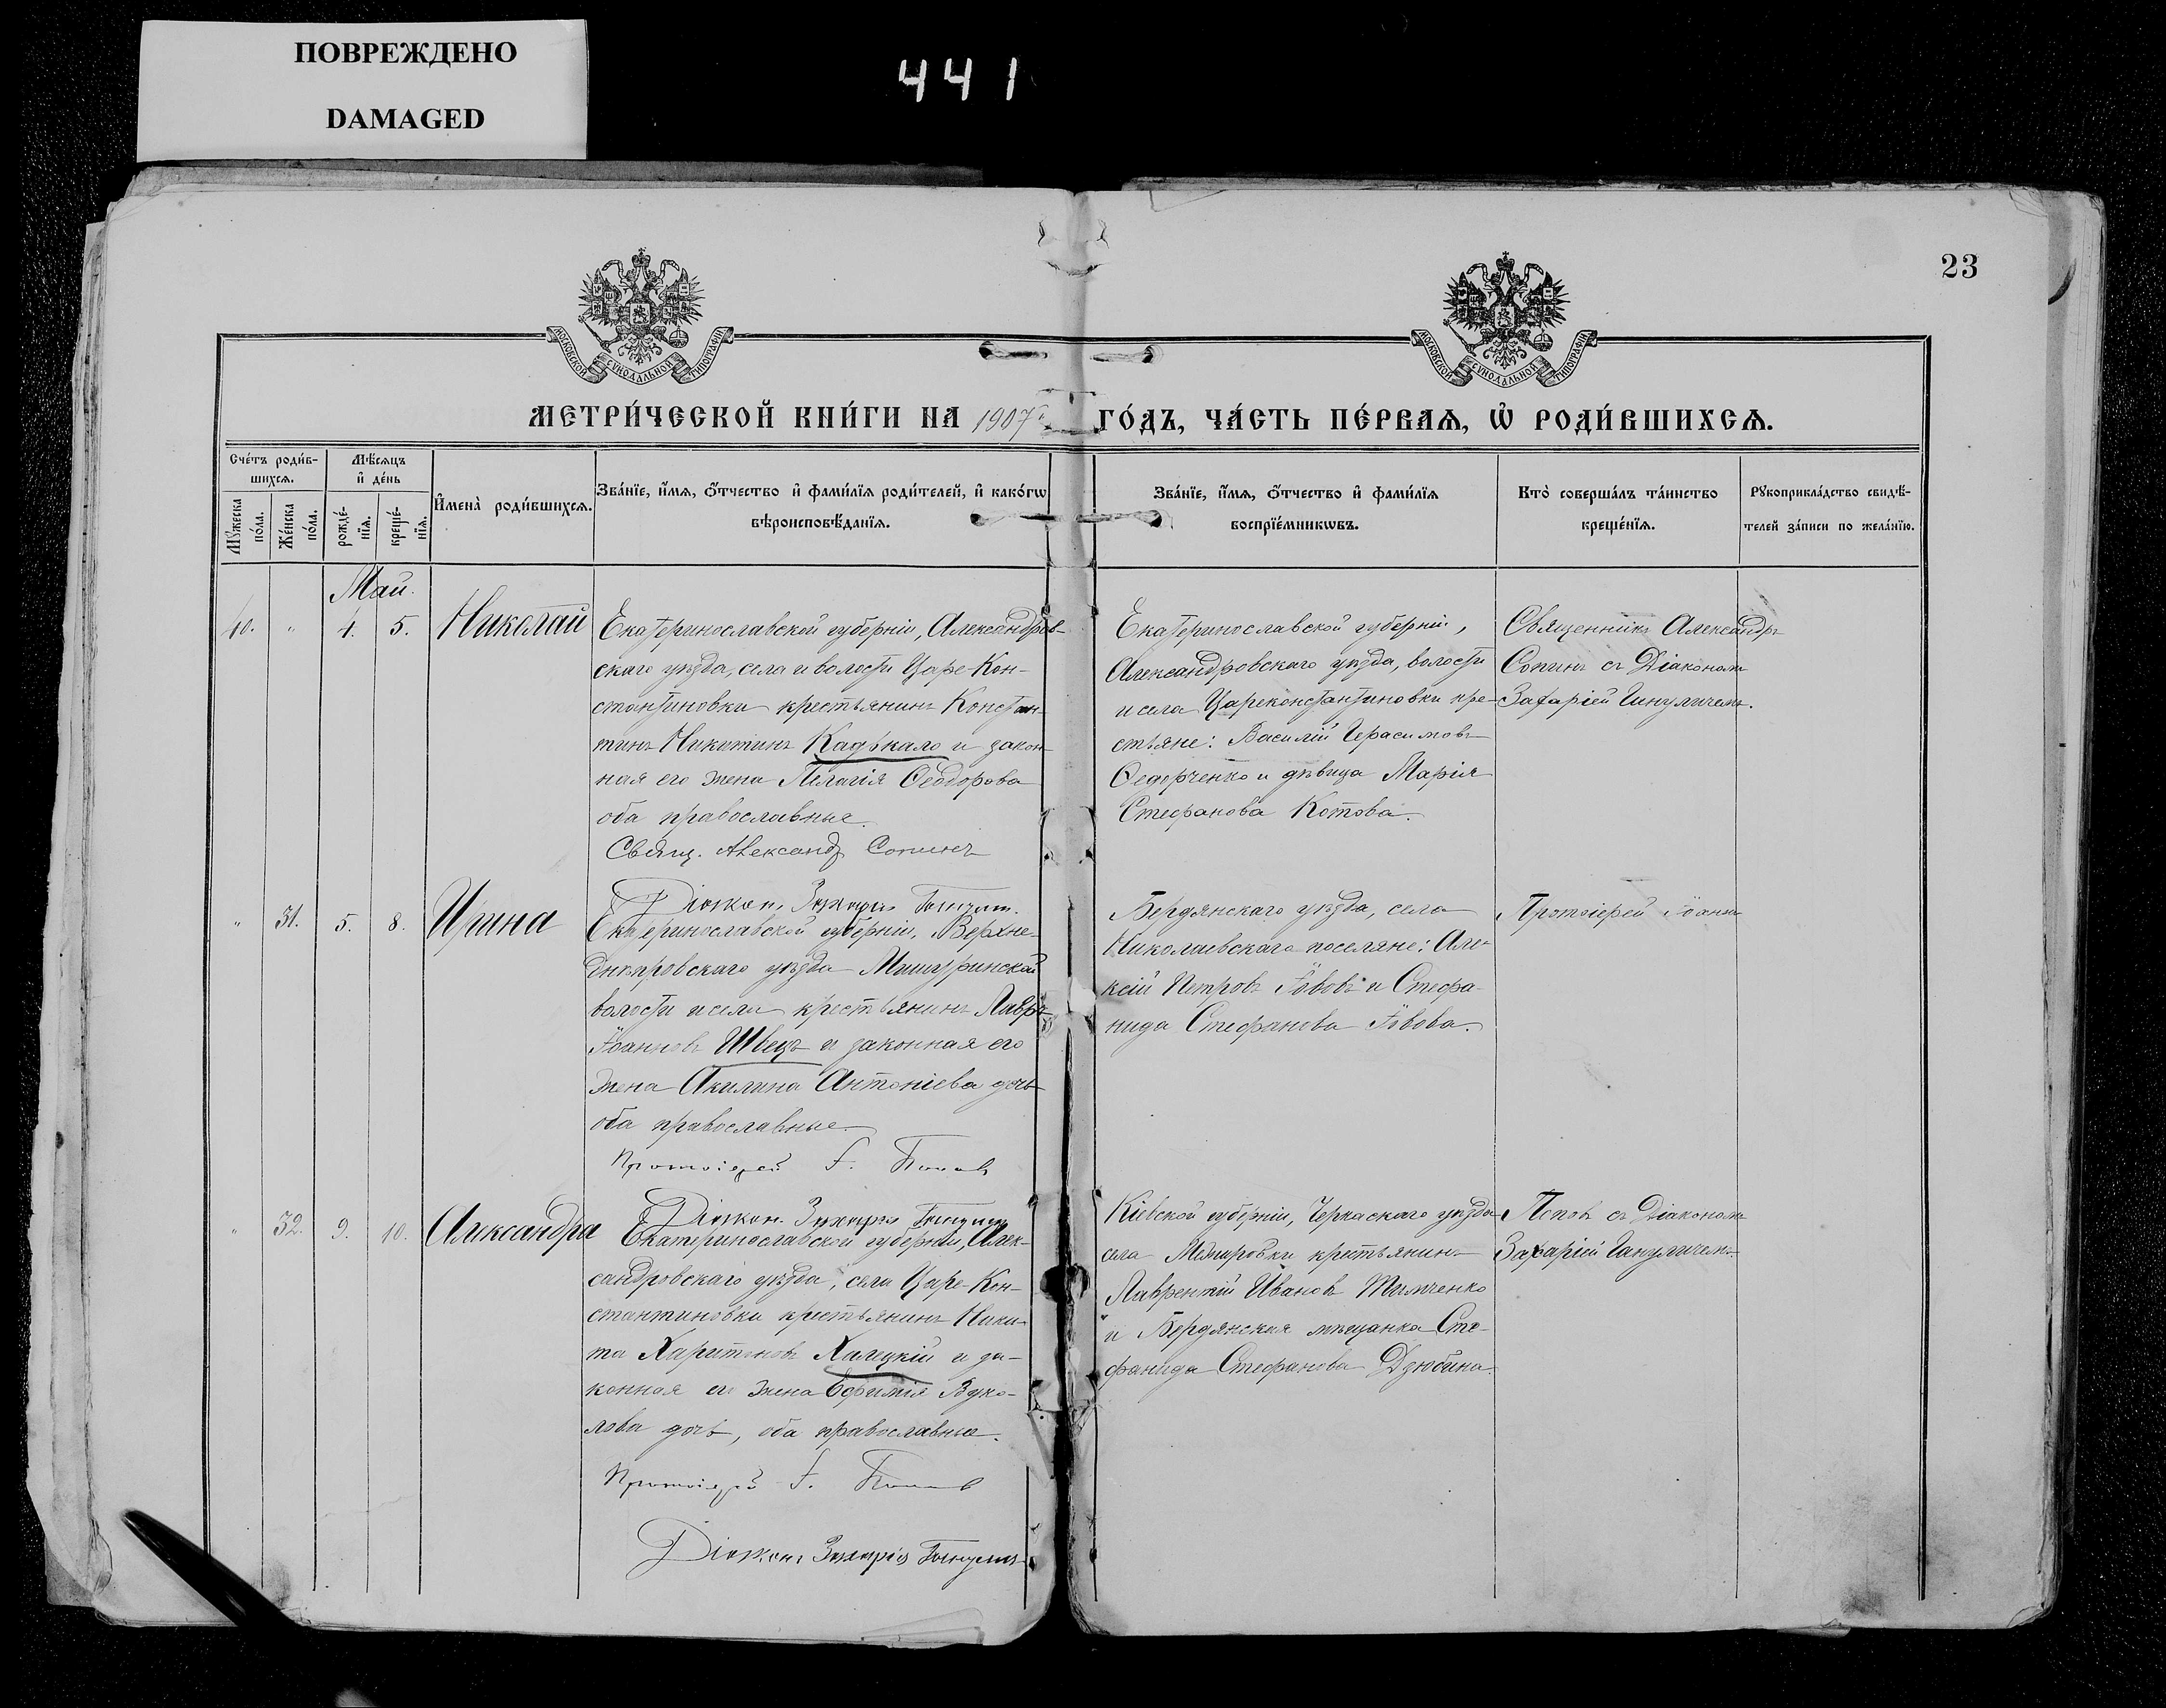 ПОВРЕЖДЕНО
DAMAGED
441
23
МОСКОВСКОЙ СѴНОДАЛЬНОЙ ТИПОГРАФІИ
МОСКОВСКОЙ СѴНОДАЛЬНОЙ ТИПОГРАФІИ
МЕТРИ́ЧЕСКОЙ КНИ́ГИ НА 1907 ГО́ДЪ, ЧА́СТЬ ПЕ́РВАѦ, Ѡ҆ РОДИ́ВШИХСѦ.
Сче́тъ роди́в-
шихсѧ.
Мѣ́сѧцъ
и҆ де́нь
Мꙋ́жеска
по́ла.
Же́нска
по́ла.
рожде́-
нїѧ.
креще́-
нїѧ.
И҆мена̀ роди́вшихсѧ.
Зва́нїе, и҆́мѧ, ѻ҆́тчество и҆ фами́лїѧ роди́телей, и҆ како́гѡ
вѣроисповѣ́данїѧ.
Зва́нїе, и҆́мѧ, ѻ҆́тчество и҆ фами́лїѧ
воспрїе́мникѡвъ.
Кто̀ соверша́лъ та́инство
креще́нїѧ.
Рꙋкоприкла́дство свидѣ́-
телей за́писи по жела́нїю.
Май.
40. " 4. 5. Николай
Екатеринославской губерніи, Александров-
скаго уѣзда, села и волости Царе-Кон-
стантиновки крестьянинъ Констан-
тинъ Никитинъ Кадькало и закон-
ная его жена Пелагія Ѳеодорова
оба православные.
Свящ. Александр Сопинъ
Діаконъ Захарія
Екатеринославской губерніи,
Александровскаго уѣзда, волости
и села Цареконстантиновки кре-
стьяне: Василій Герасимовъ
Ѳедорченко и дѣвица Марія
Стефанова Котова.
Священникъ Александръ
Сопинъ съ Діакономъ
Захаріей
" 31. 5. 8. Ирина
Екатеринославской губерніи, Верхне-
днѣпровскаго уѣзда Мишуринской
волости и села крестьянинъ Лавръ
Іоанновъ Швецъ и законная его
жена Акилина Антоніева дочь
оба православные.
Протоіерей І. Поповъ
Діакон Захарія
Бердянскаго уѣзда, села
Николаевскаго поселяне: Але-
ксій Петровъ Іововъ и Стефа-
нида Стефанова Іовова.
Протоіерей Іоаннъ
" 32. 9. 10. Александра
Екатеринославской губерніи, Алек-
сандровскаго уѣзда, села Царе-Кон-
стантиновки крестьянинъ Ники-
та Харитоновъ Халецкій и за-
конная его жена Евфимія Вуко-
лова дочь, оба православные.
Протоіерей І. Поповъ
Діаконъ Захарія
Кіевской губерніи, Черкаскаго уѣзда
села крестьянинъ
Лаврентій Ивановъ Тимченко
и Бердянская мѣщанка Сте-
фанида Стефанова Дзюбина.
Поповъ съ Діакономъ
Захаріей